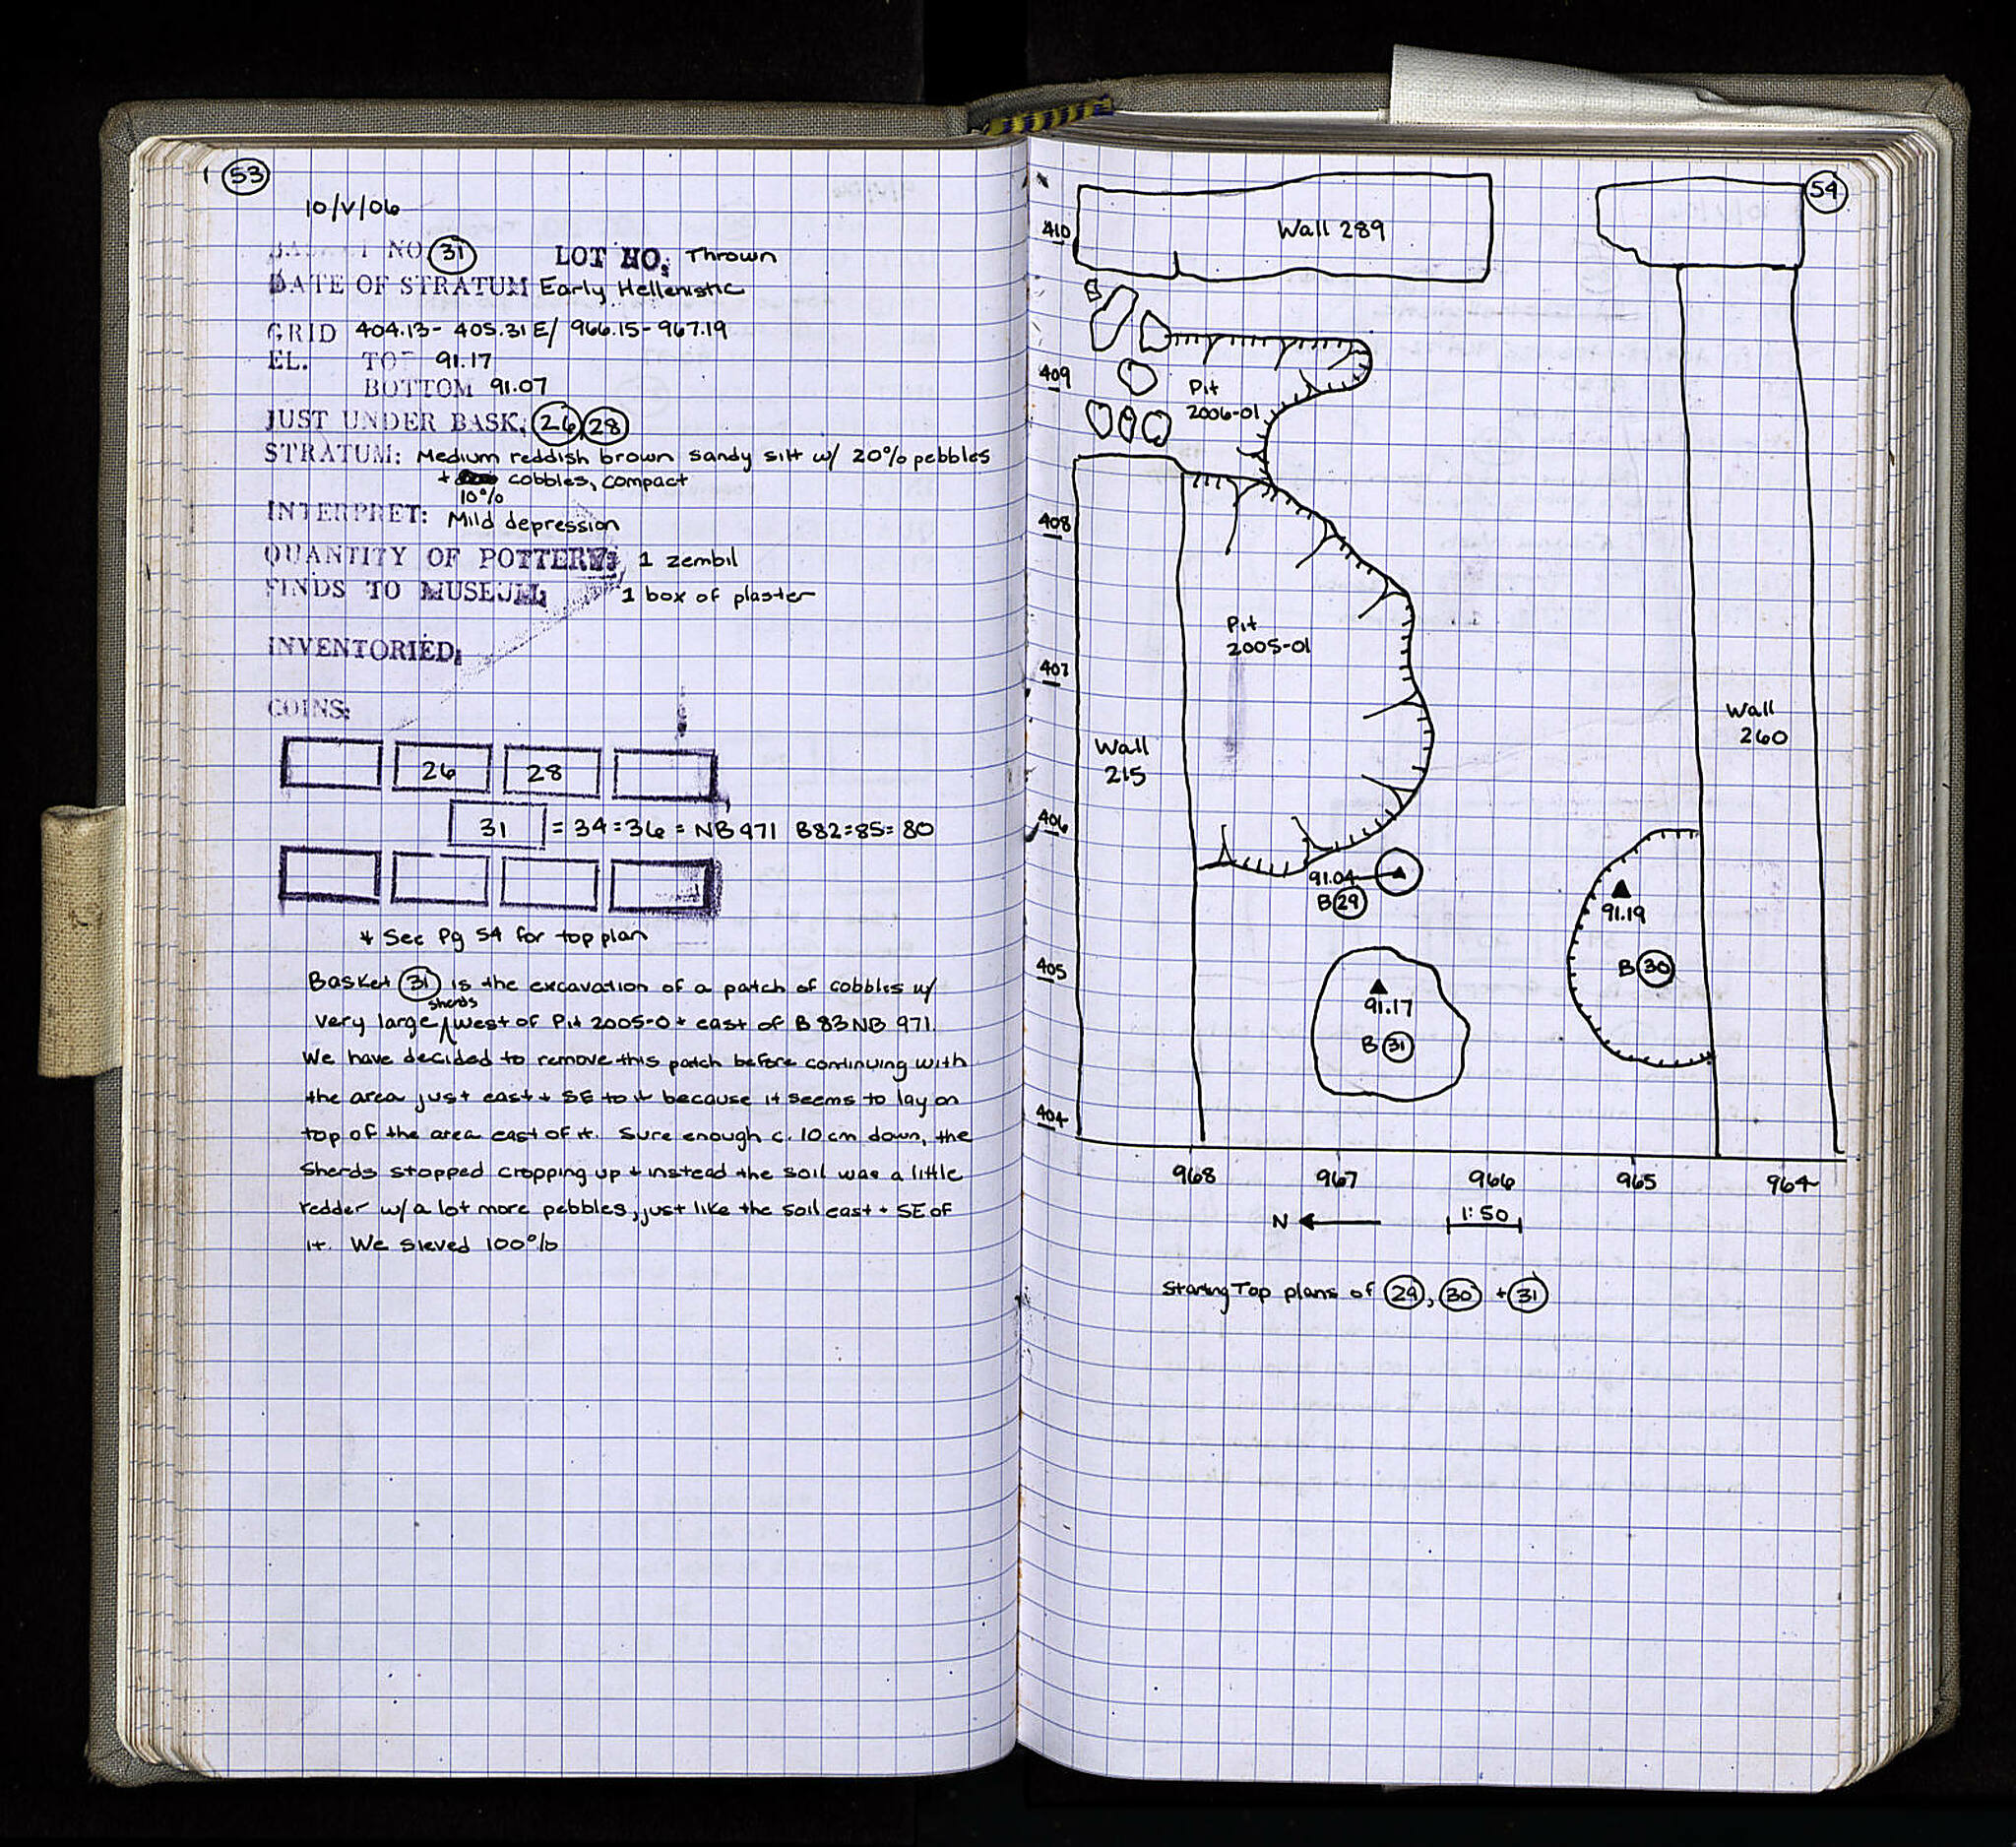 53
10/V/06
BASKET NO 31 LOT NO: Thrown
DATE OF STRATUM Early Hellenistic
GRID 404.13- 405.31 E/ 966.15-967.19
EL. TOP 91.17
BOTTOM 91.07
JUST UNDER BASK: 26 28
STRATUM: Medium reddish brown sandy silt w/ 20% pebbles
+ 10% cobbles, compact
INTERPRET: Mild depression
QUANTITY OF POTTERY: 1 zembil
FINDS TO MUSEUM: 1 box of plaster
INVENTORIED:
COINS:
26 28
31 = 34 = 36 = NB 971 B82=85=80
* See pg 54 for top plan
Basket 31 is the excavation of a patch of cobbles w/
very large sherds west of Pit 2005-0 + east of B 83 NB 971.
We have decided to remove this patch before continuing with
the area just east + SE to it because it seems to lay on
top of the area east of it. Sure enough c. 10 cm down, the
sherds stopped cropping up + instead the soil was a little
redder w/ a lot more pebbles, just like the soil east + SE of
it. We sieved 100%
54
410
Wall 289
409
Pit
2006-01
408
Pit
2005-01
407
Wall
260
Wall
215
406
91.04
B 29
91.19
B 30
405
91.17
B 31
404
968 967 966 965 964
N 1:50
Starting Top plans of 29, 30 + 31